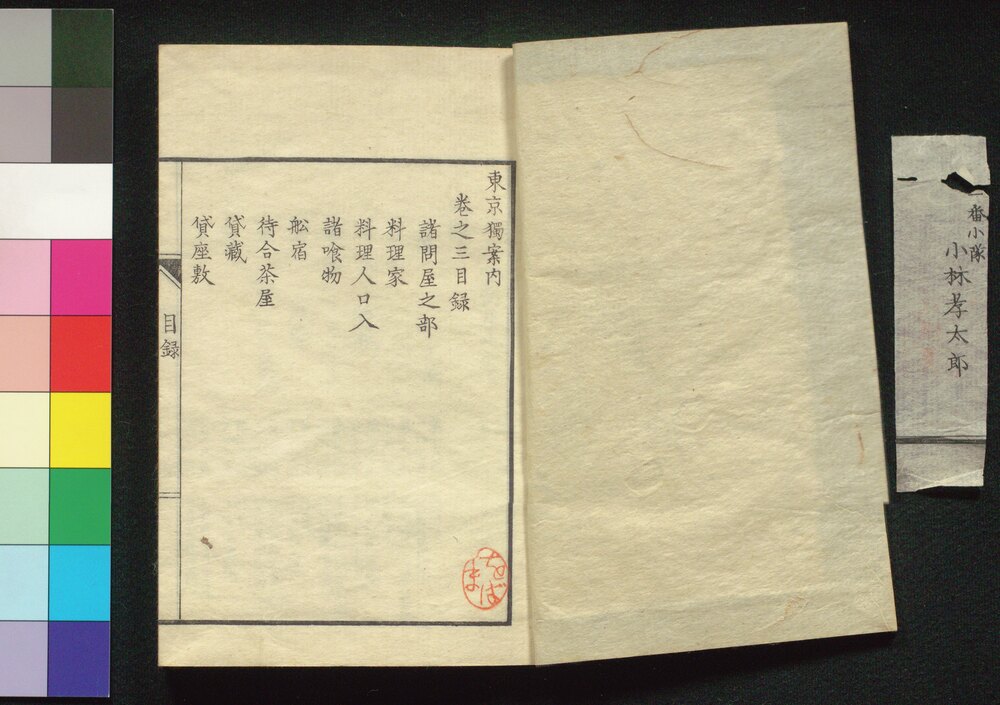 一番小隊
小林孝太郎
東京獨案内
巻之三目録
諸問屋之部
料理家
料理人口入
諸喰物
舩宿
待合茶屋
貸藏
貸座敷
目録